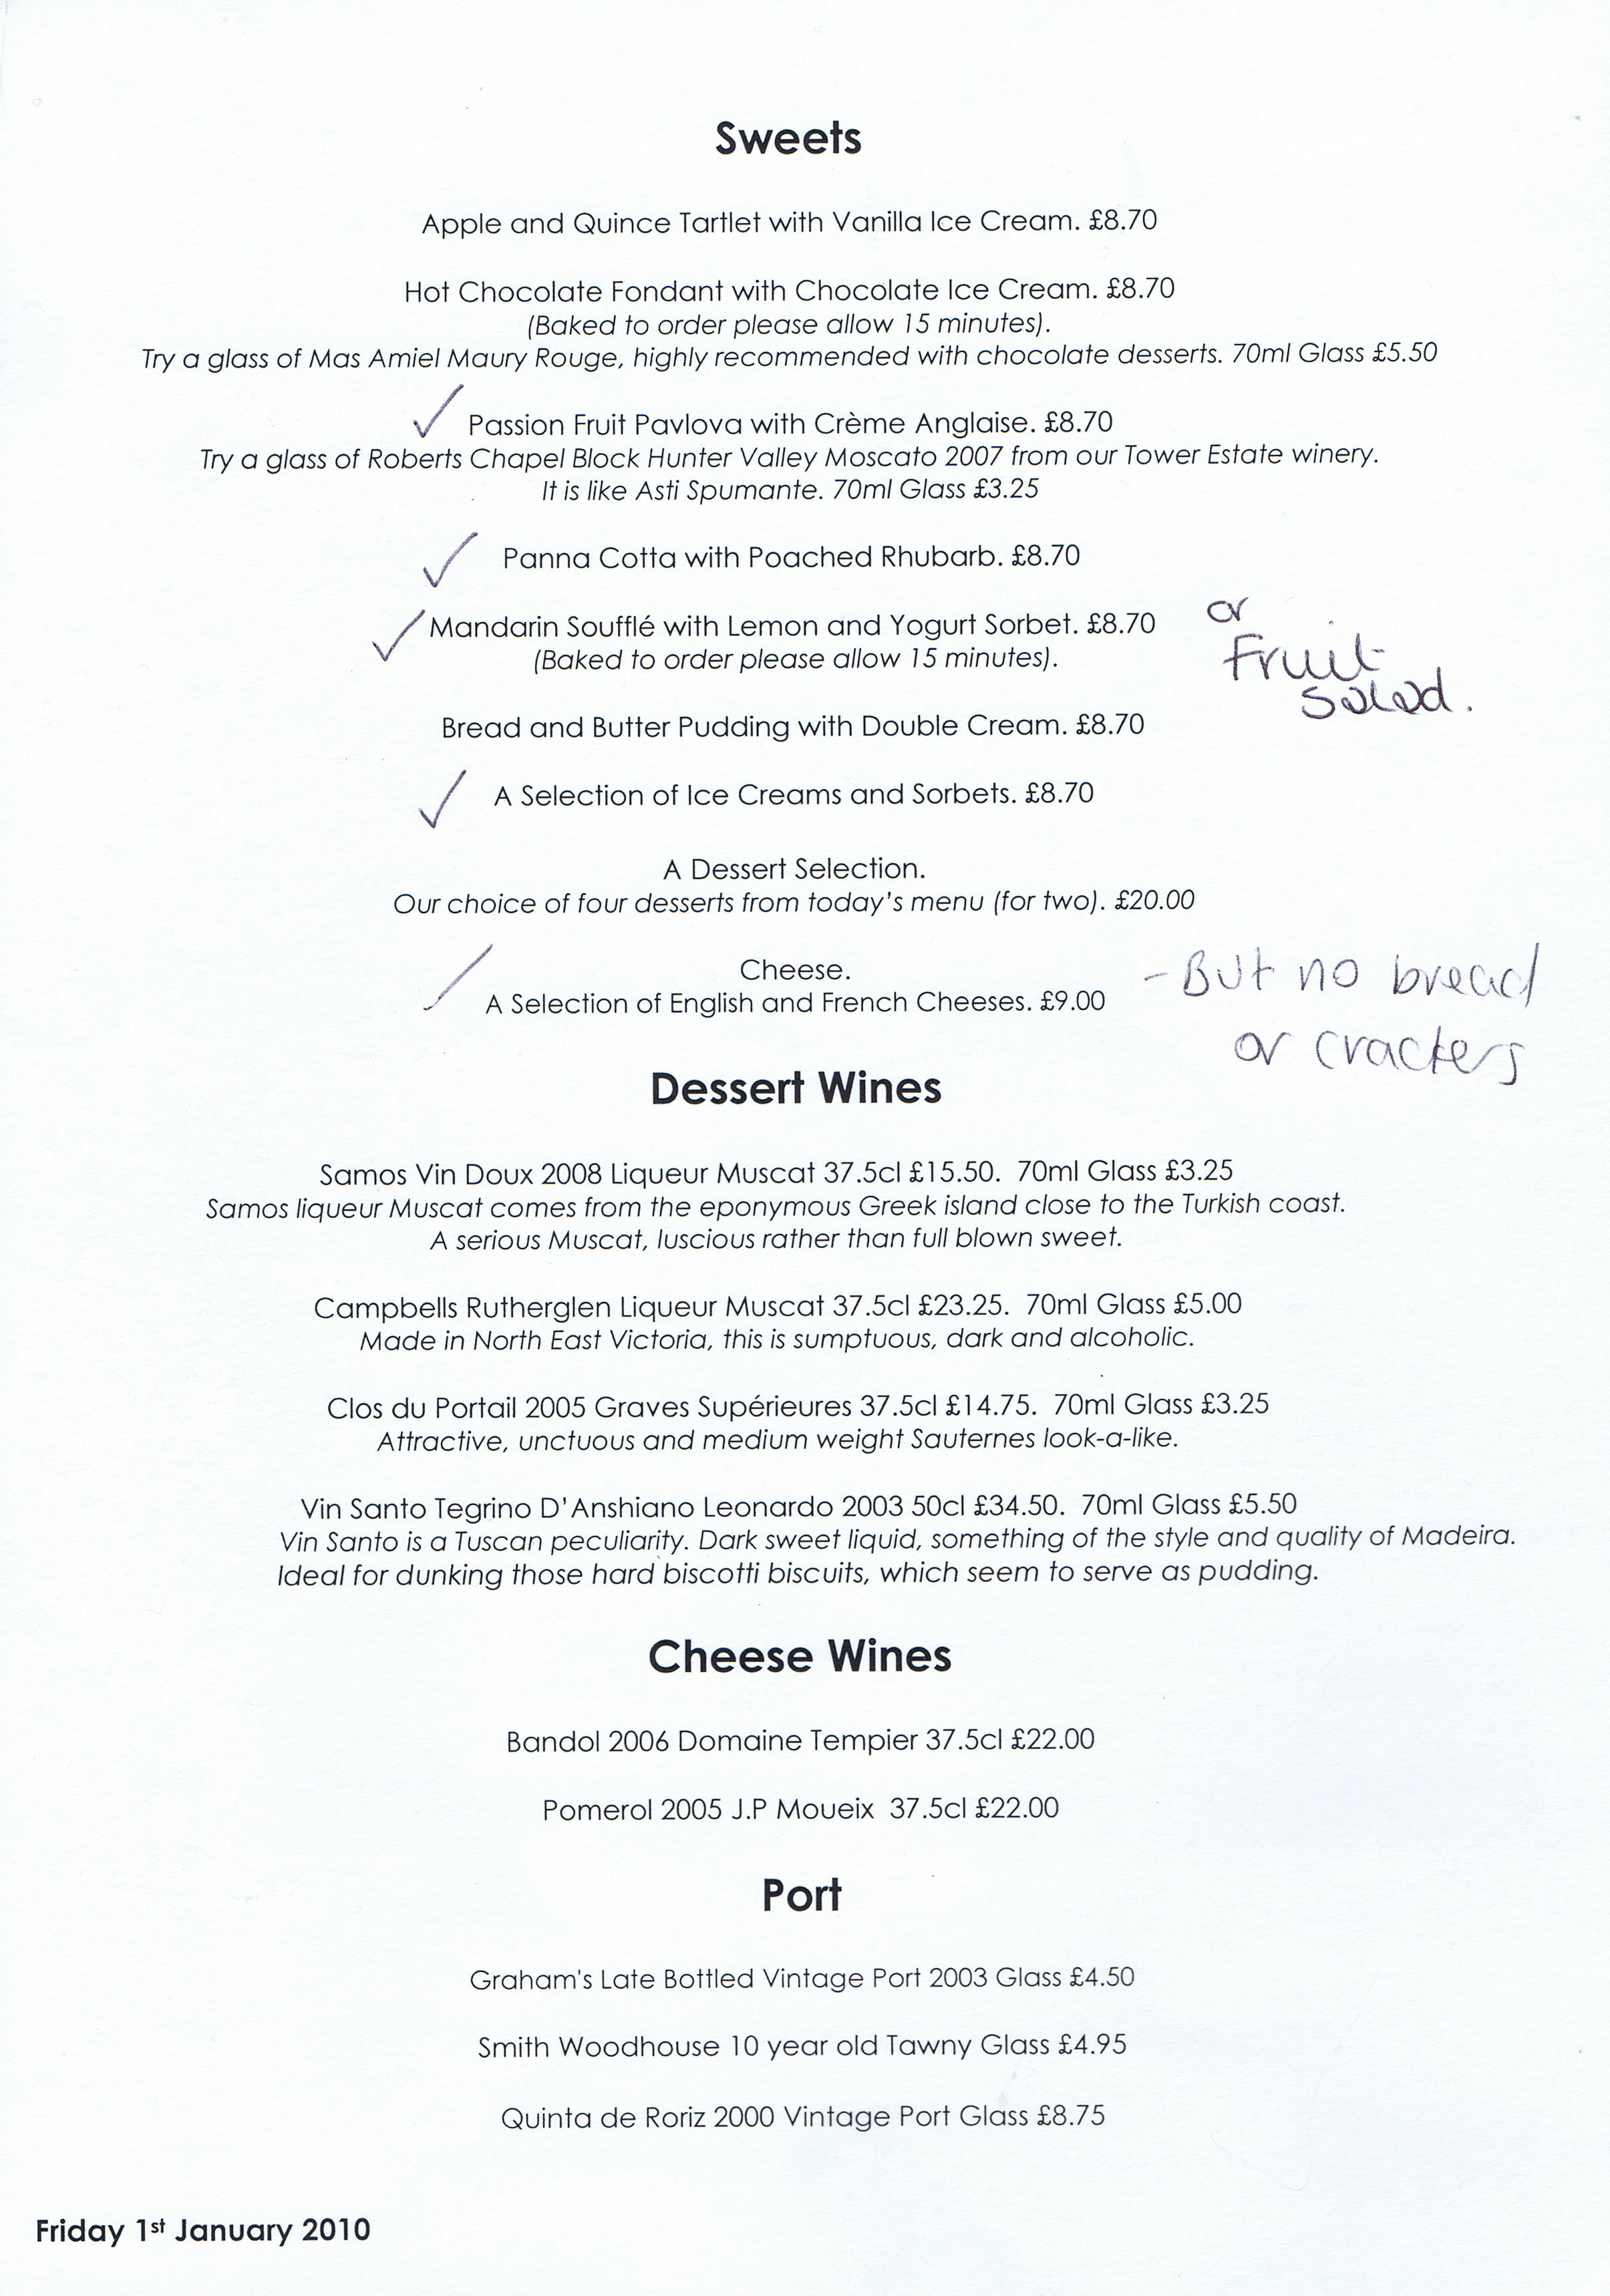 Sweets
Apple and Quince Tartlet with Vanilla Ice Cream. £8.70
Hot Chocolate Fondant with Chocolate Ice Cream. £8.70
(Baked to order please allow 15 minutes).
Try a glass of Mas Amiel Maury Rouge, highly recommended with chocolate desserts. 70ml Glass £5.50
Passion Fruit Pavlova with Crème Anglaise. £8.70
Try a glass of Roberts Chapel Block Hunter Valley Moscato 2007 from our Tower Estate winery.
It is like Asti Spumante. 70ml Glass £3.25
Panna Cotta with Poached Rhubarb. £8.70
Mandarin Soufflé with Lemon and Yogurt Sorbet. £8.70
(Baked to order please allow 15 minutes).
or
Fruit
salad.
Bread and Butter Pudding with Double Cream. £8.70
A Selection of Ice Creams and Sorbets. £8.70
A Dessert Selection.
Our choice of four desserts from today's menu (for two). £20.00
Cheese.
A Selection of English and French Cheeses. £9.00
- But no bread
or crackers
Dessert Wines
Samos Vin Doux 2008 Liqueur Muscat 37.5cl £15.50. 70ml Glass £3.25
Samos liqueur Muscat comes from the eponymous Greek island close to the Turkish coast.
A serious Muscat, luscious rather than full blown sweet.
Campbells Rutherglen Liqueur Muscat 37.5cl £23.25. 70ml Glass £5.00
Made in North East Victoria, this is sumptuous, dark and alcoholic.
Clos du Portail 2005 Graves Supérieures 37.5cl £14.75. 70ml Glass £3.25
Attractive, unctuous and medium weight Sauternes look-a-like.
Vin Santo Tegrino D'Anshiano Leonardo 2003 50cl £34.50. 70ml Glass £5.50
Vin Santo is a Tuscan peculiarity. Dark sweet liquid, something of the style and quality of Madeira.
Ideal for dunking those hard biscotti biscuits, which seem to serve as pudding.
Cheese Wines
Bandol 2006 Domaine Tempier 37.5cl £22.00
Pomerol 2005 J.P Moueix 37.5cl £22.00
Port
Graham's Late Bottled Vintage Port 2003 Glass £4.50
Smith Woodhouse 10 year old Tawny Glass £4.95
Quinta de Roriz 2000 Vintage Port Glass £8.75
Friday 1st January 2010